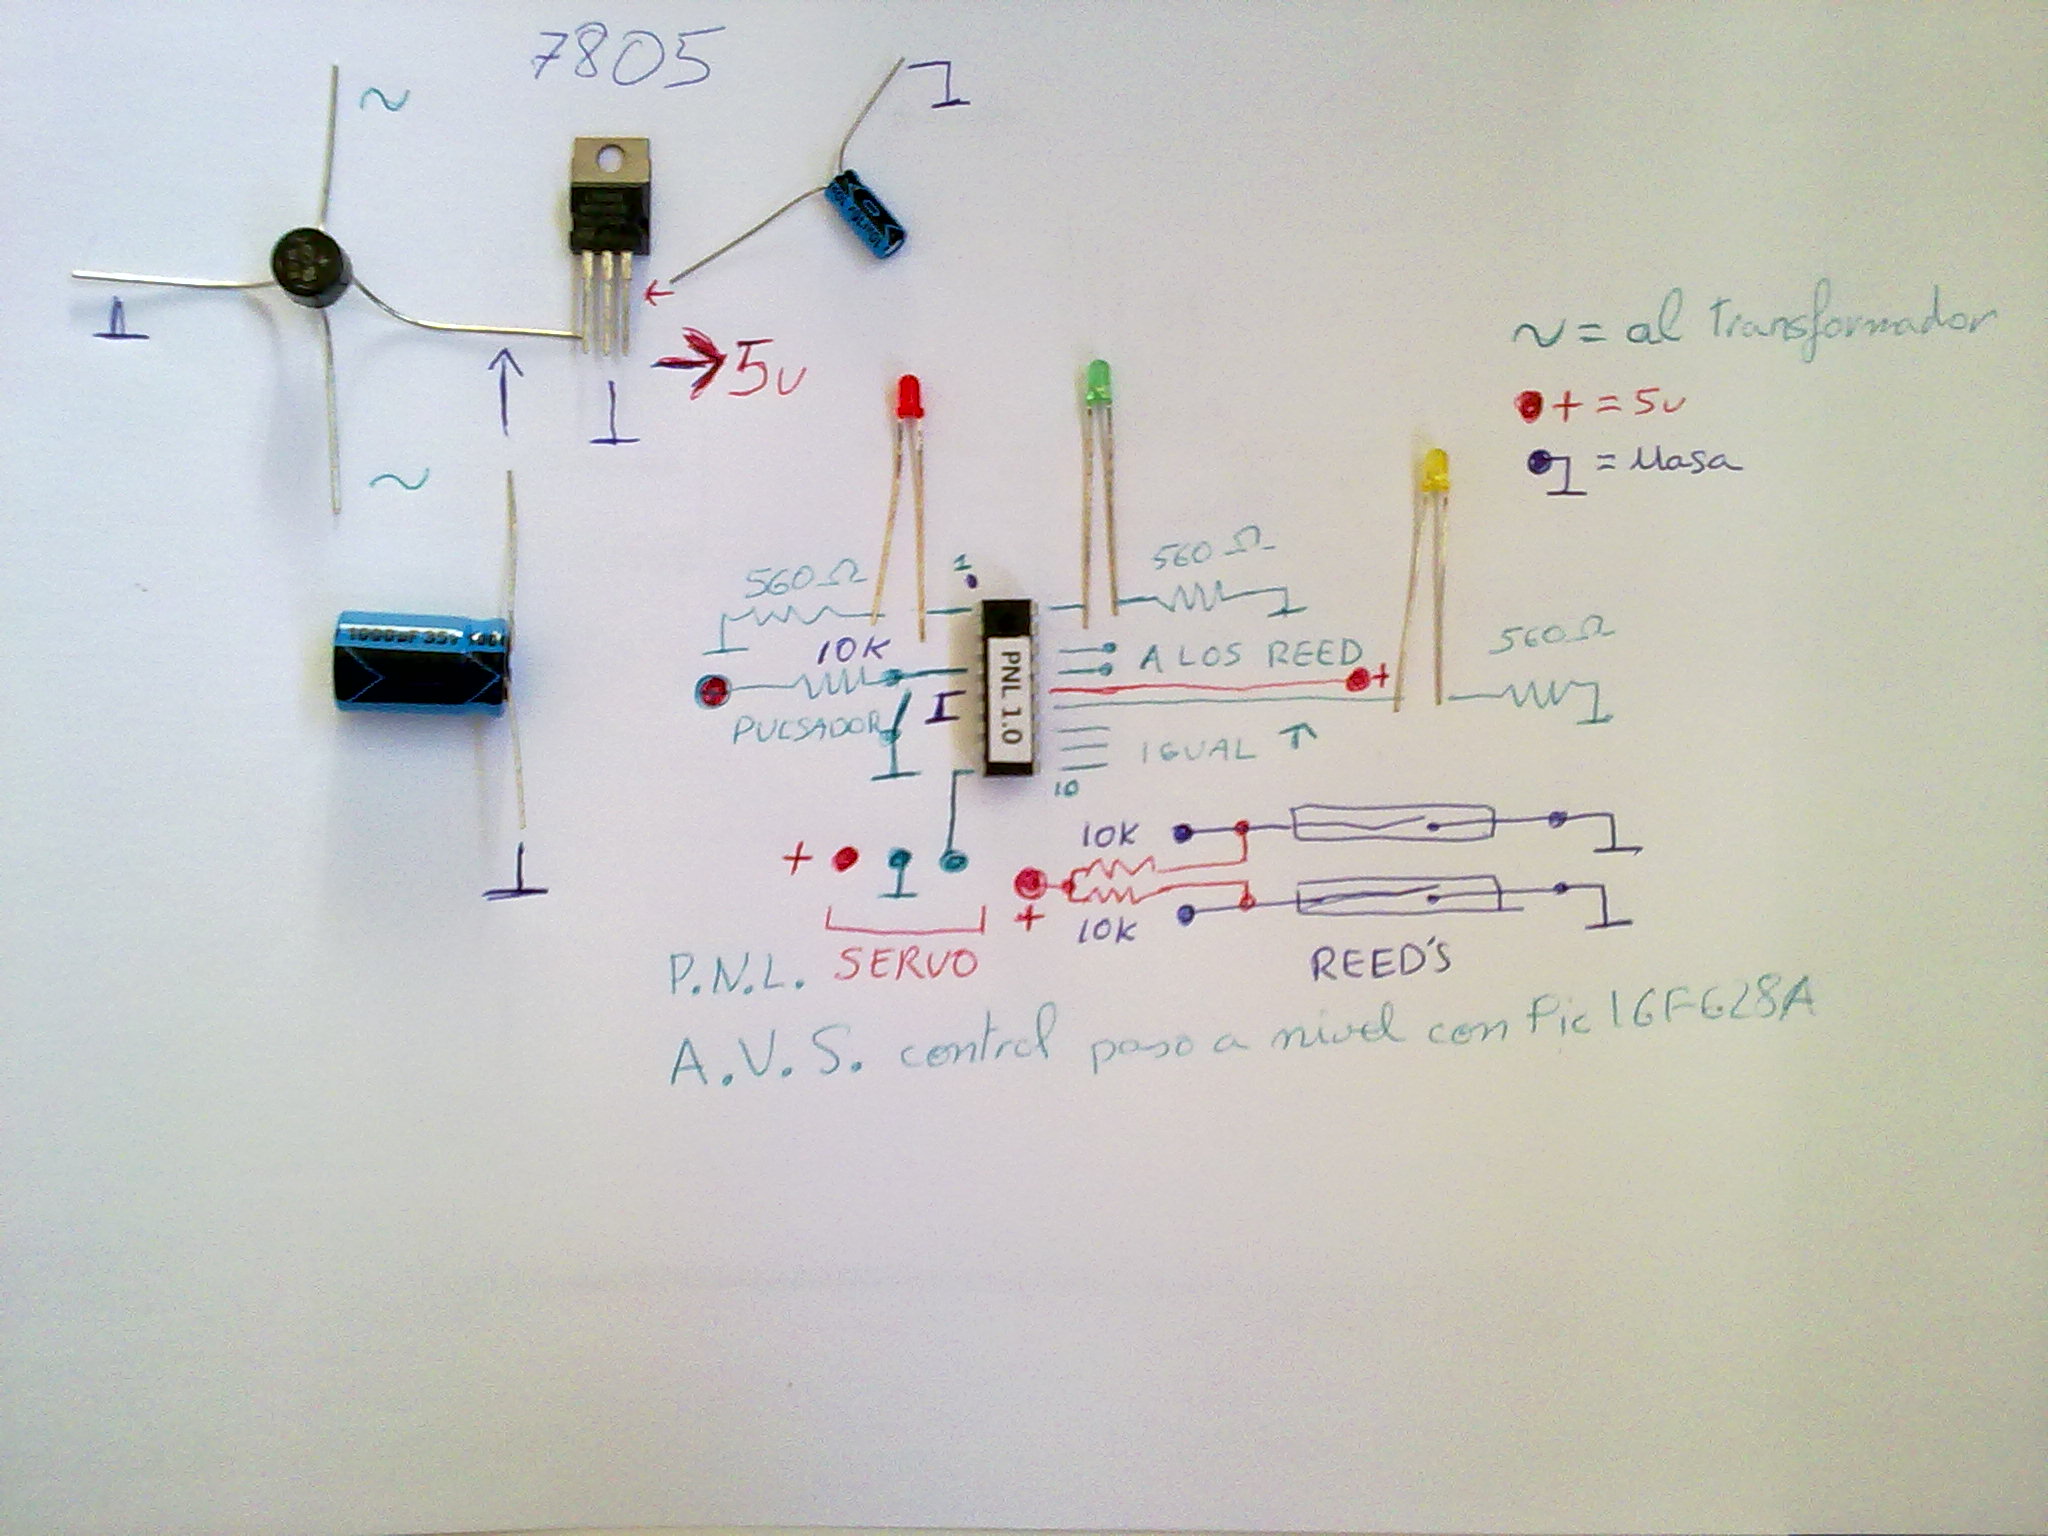 7805
~
5v
~
~ = al transformador
+ = 5v
= Masa
1000µF 35v
560Ω
1
560Ω
10K
A LOS REED
+
560Ω
PULSADOR
PNL 1.0
IGUAL ↑
10
10K
+
+
10K
SERVO
REED'S
P.N.L.
A.V.S. control paso a nivel con Pic 16F628A